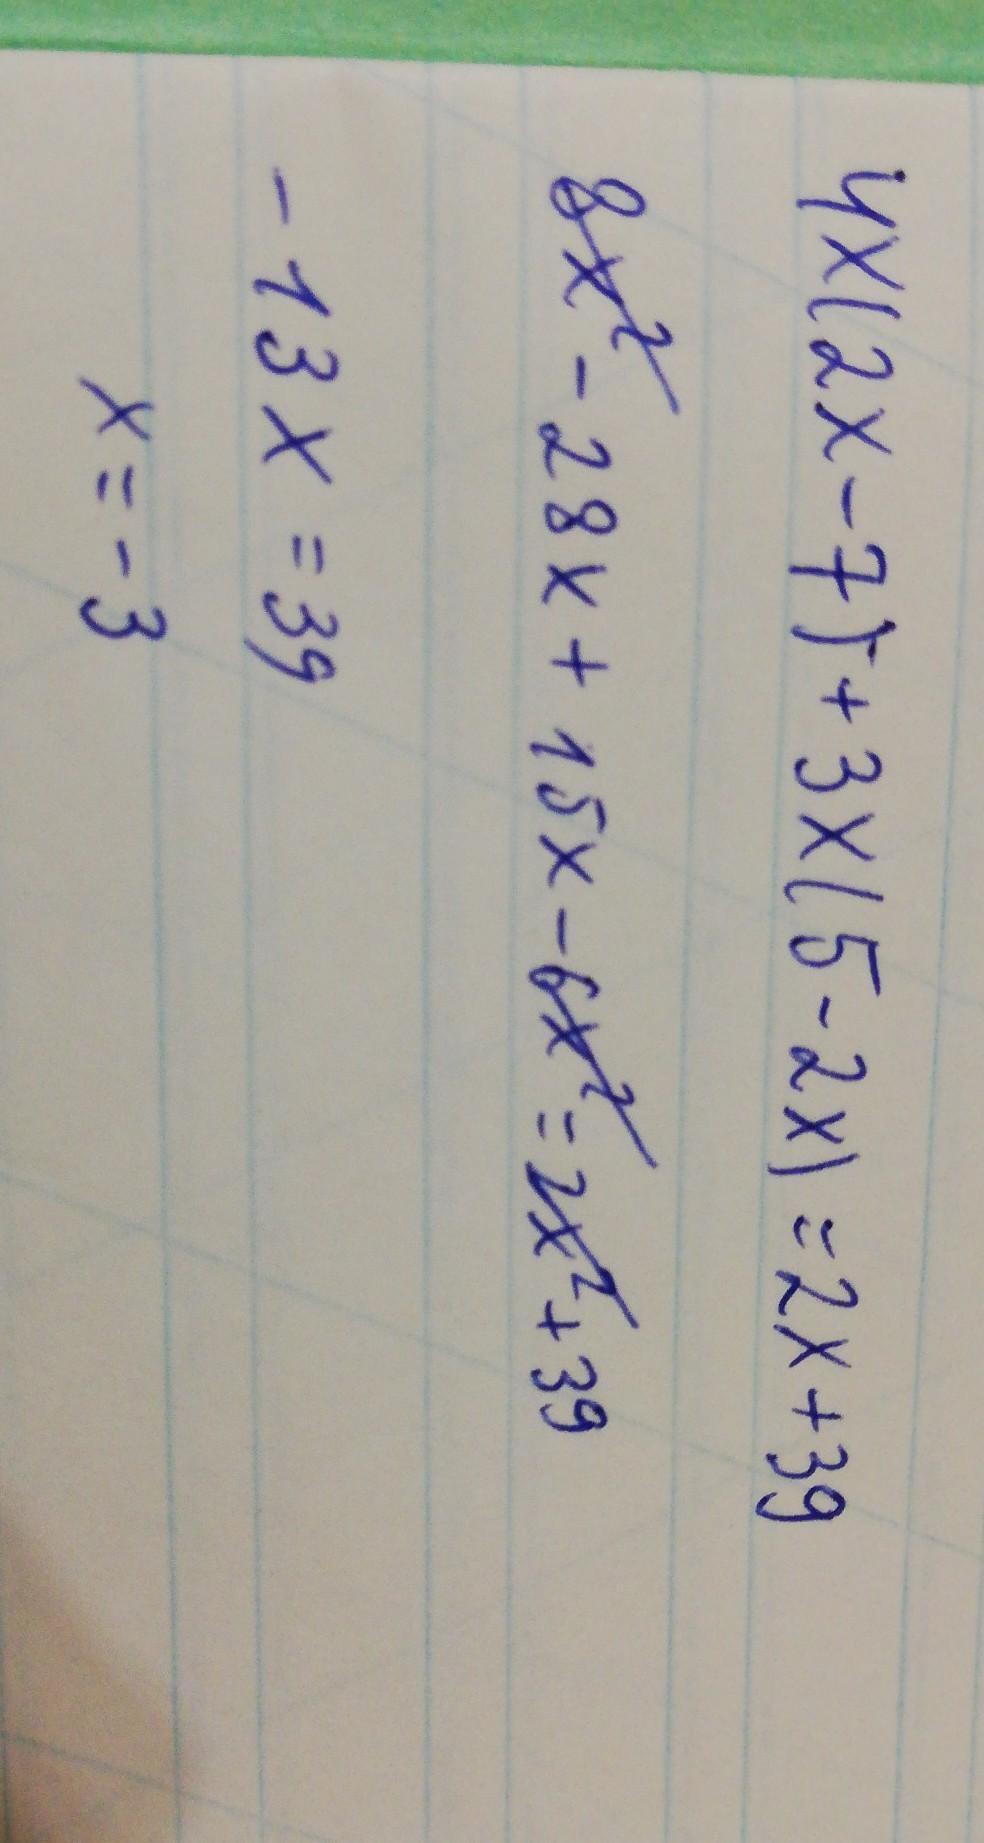 4x(2x-7)+3x(5-2x)=2x+39
8x²-28x+15x-6x²=2x²+39
-13x=39
x=-3